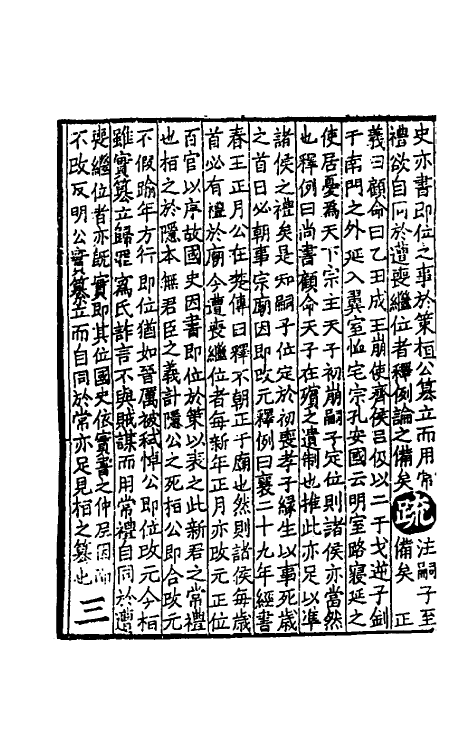 史亦書即位之事於策桓公篡立而用常
禮欲自同於遭喪繼位者釋例論之備矣疏注嗣子至備矣 正
義曰顧命曰乙丑成王崩使齊侯呂伋以二干戈逆子釗
于南門之外延入翼室恤宅宗孔安國云明室路寢延之
使居憂為天下宗主天子初崩嗣子定位則諸侯亦當然
也釋例曰尚書顧命天子在殯之遺制也推此亦足以準
諸侯之禮矣是知嗣子位定於初喪孝子緣生以事死歲
之首日必朝事宗廟因即改元釋例曰襄二十九年經書
春王正月公在楚傳曰釋不朝正子廟也然則諸侯每歲
首必有禮於廟今遭喪繼位者每新年正月亦改元正位
百官以序故國史因書即位於策以表之此新君之常禮
也桓之於隱本無君臣之義計隱公之死桓公即合改元
不假踰年方行即位猶如晉厲被弒悼公即位改元今桓
雖實篡立歸罪寪氏詐言不與賊謀而用常禮自同於遭
喪繼位者亦既實即其位國史依實書之仲尼因而
不改反明公實篡立而自同於常亦足見桓之篡也
三